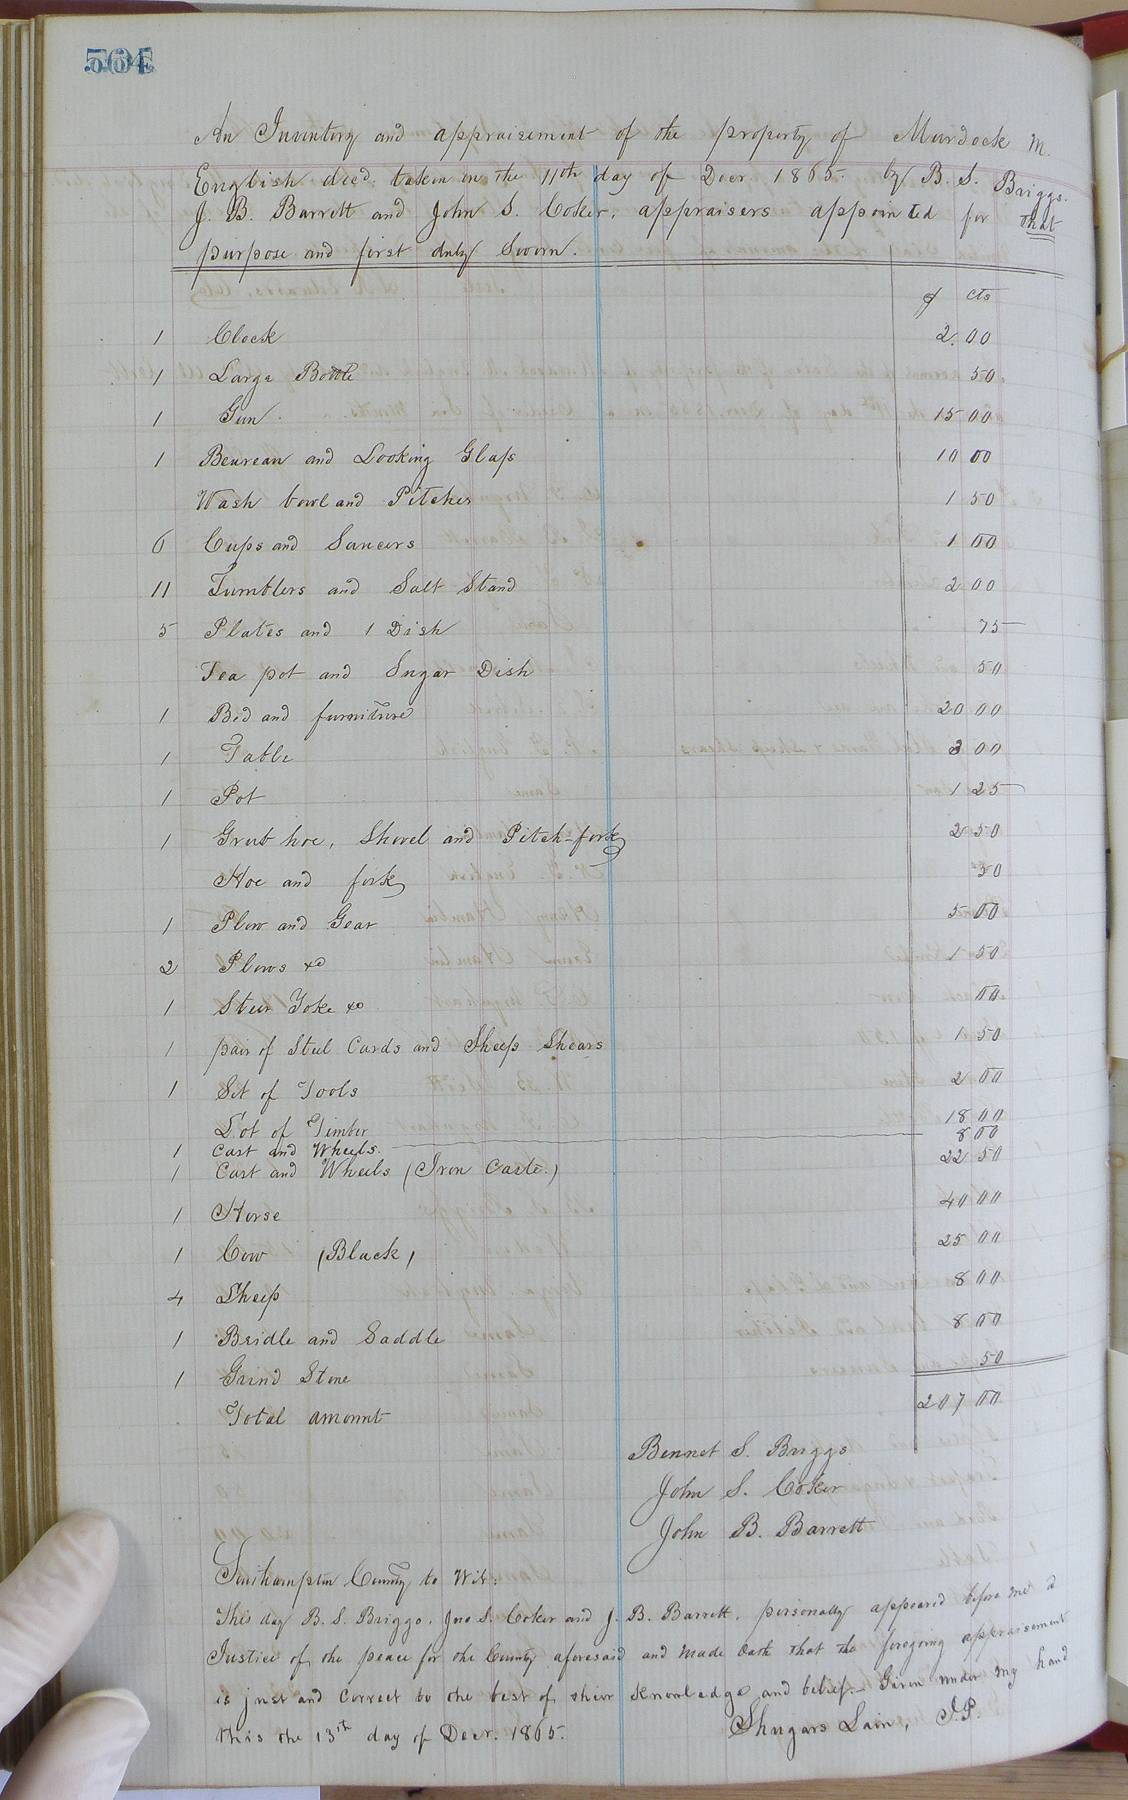 An Inventory and appraisement of the property of Murdock M.
English decd. taken on the 11th day of Decr. 1865. by B. S. Briggs.
J. B. Barrett and John S. Coker, appraisers appointed for that
purpose and first duly Sworn.
$ cts
1 Clock 2.00
1 Large Bottle 50
1 Gun 15 00
1 Beureau and Looking Glass 10 00
Wash bowl and Pitcher 1 50
6 Cups and Saucers 1 00
11 Tumblers and Salt Stand 2 00
5 Plates and 1 Dish 75
Tea pot and Sugar Dish 50
1 Bed and furniture 20 00
1 Table 3 00
1 Pot 1 25
1 Grub hoe, Shovel and Pitch-fork 2 50
Hoe and fork 50
1 Plow and Gear 5 00
2 Plows &c 1 50
1 Steer Yoke &c 00
1 pair of Steel Cards and Sheep Shears 1 50
1 Set of Tools 2 00
Lot of Timber 18 00
1 Cart and Wheels. 8 00
1 Cart and Wheels (Iron Castle.) 22 50
1 Horse 40 00
1 Cow (Black) 25 00
4 Sheep 8 00
1 Bridle and Saddle 8 00
1 Grind Stone 50
Total amount 207 00
Bennet S. Briggs
John S. Coker
John B. Barrett
Southampton County to Wit:
This day B. S. Briggs, Jno S. Coker and J. B. Barrett, personally appeared before me a
Justice of the peace for the County aforesaid and made Oath that the foregoing appraisement
is just and correct to the best of their Knowledge and belief. Given under my hand
this the 13th day of Decr. 1865.
Shugars Lain, J.P.